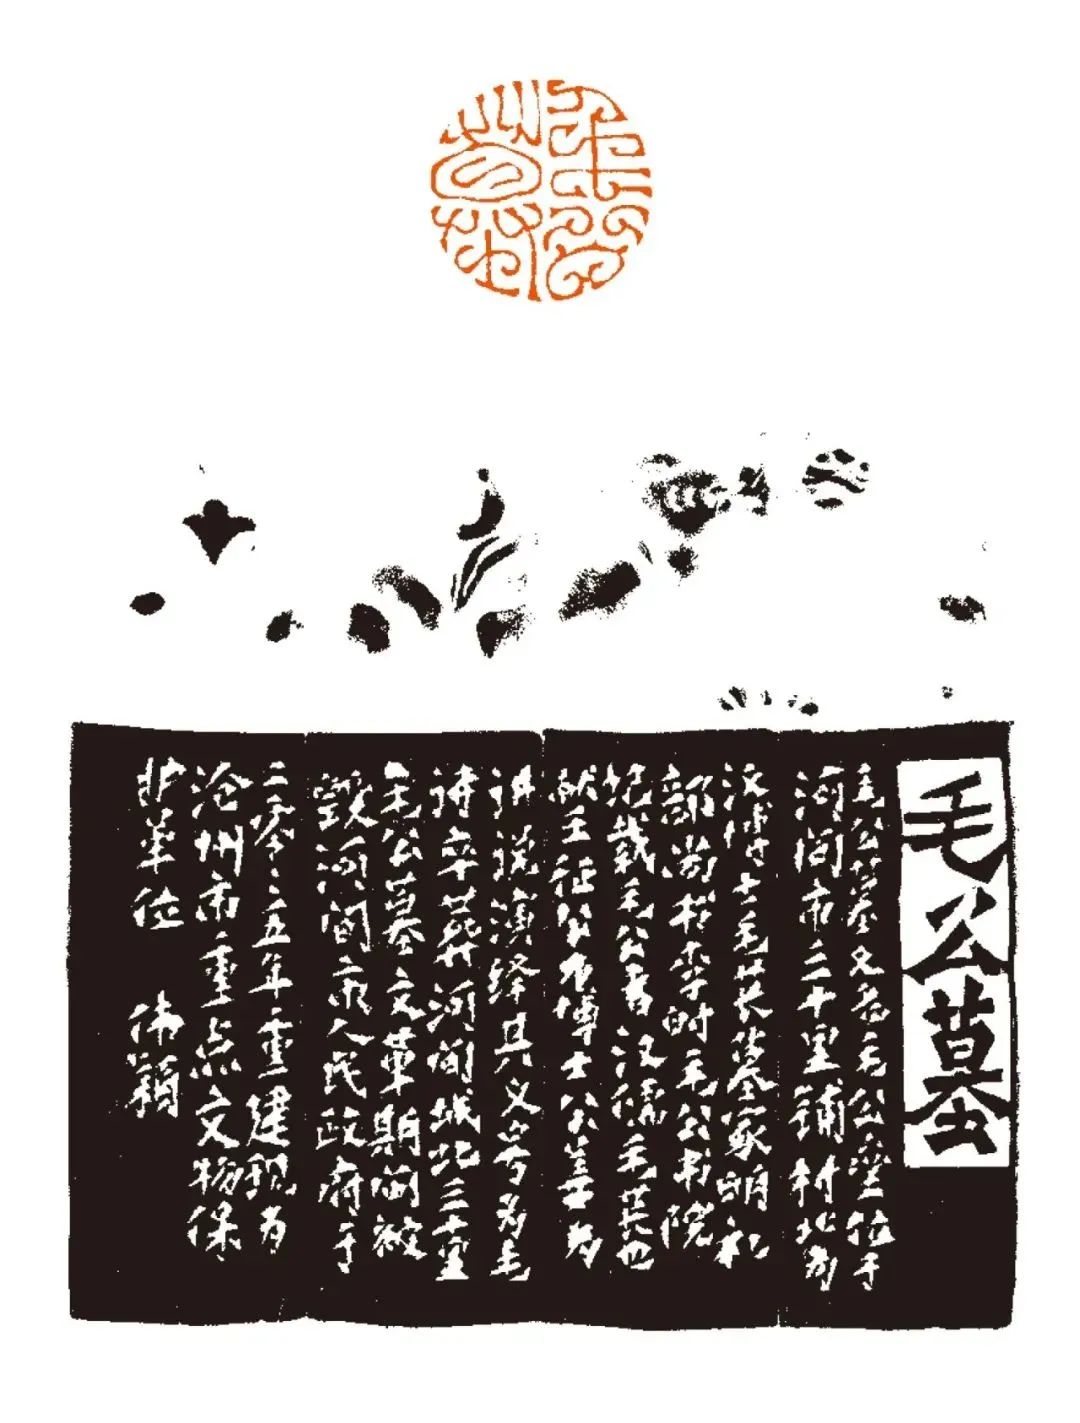 毛公墓
毛公墓
毛公墓又名毛公垄位于
河间市三十里铺村北为
汉博士毛苌墓冢明礼
部尚书李时毛公书院
记载毛公者汉儒毛苌也
献王征公为博士公善为
讲说演绎其义号为毛
诗卒葬河间城北三十里
毛公墓文革期间被
毁河间市人民政府于
二零五年重建现为
沧州市重点文物保
护单位 伟颖